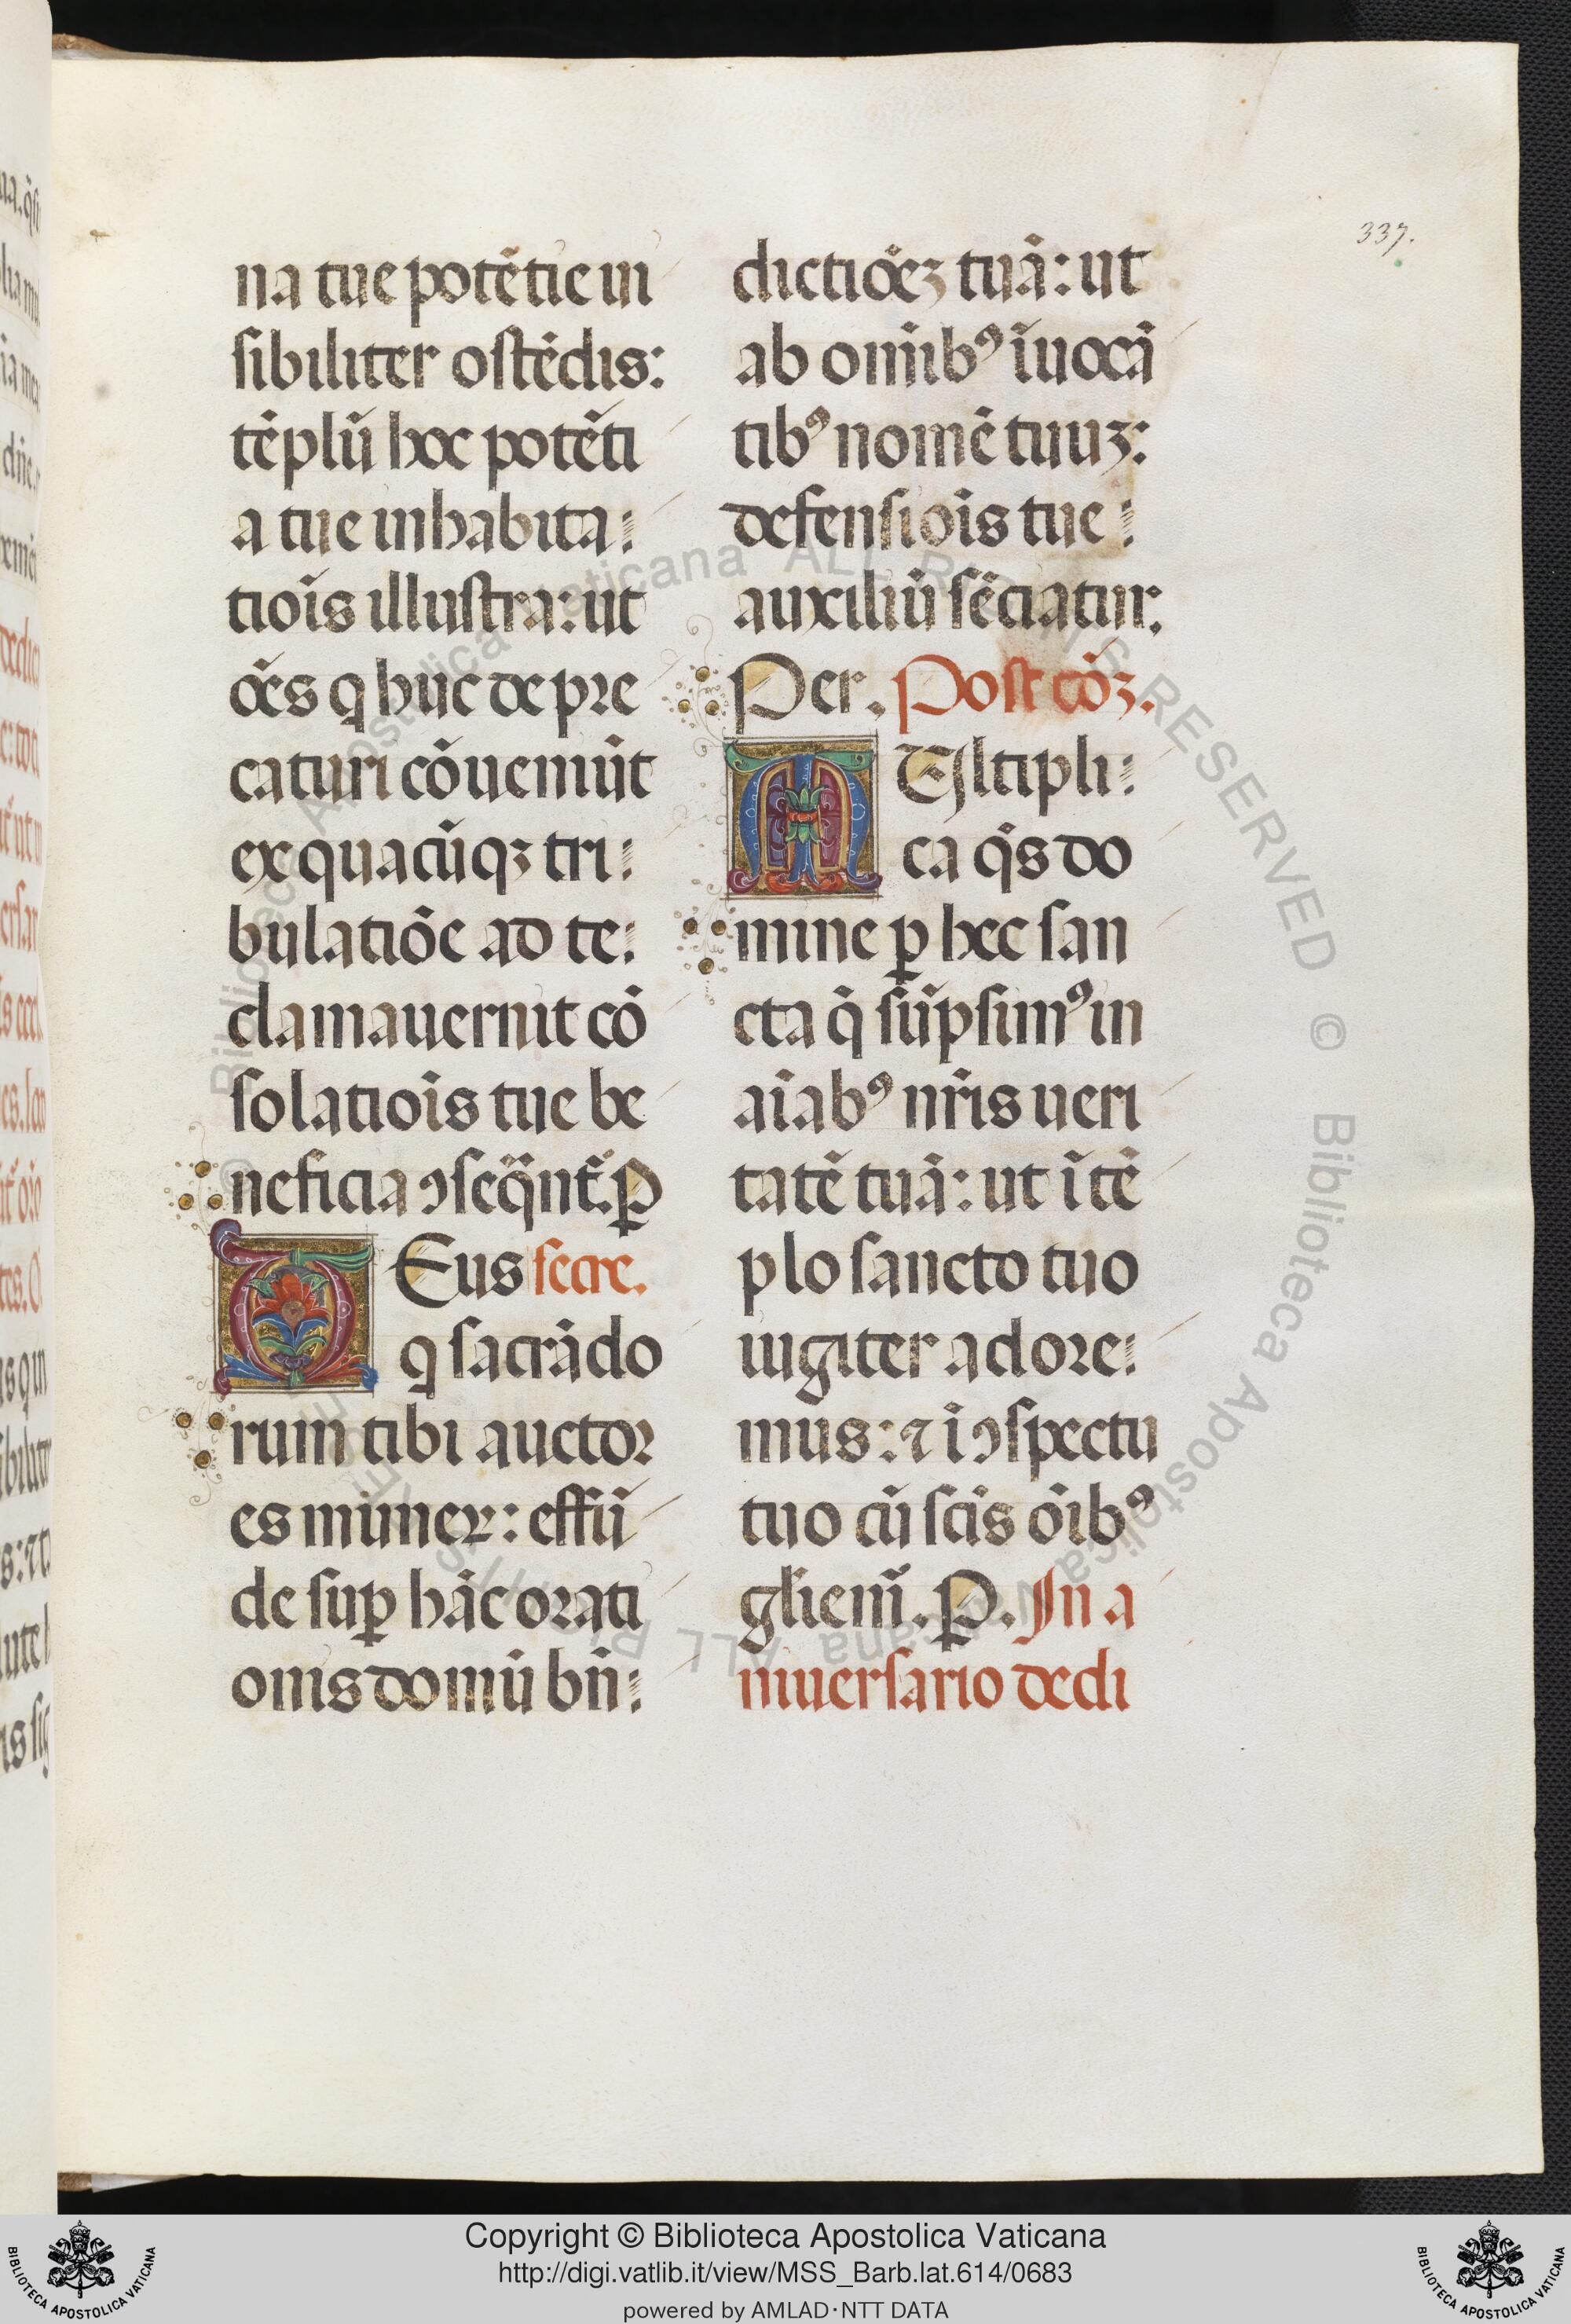 na tue potẽtie ui
sibiliter ostẽdis:
tẽplũ hoc potẽti
a tue inhabita:
tiõis illustra: ut
oẽs q huc depre
caturi cõuenniũt
ex quacũqꝫ tri:
bulatiõe ad te:
clamauerint cõ
solatiõis tue be
neficia ꝯseq̃nt̃. ꝑ
DEus secre.
q sacrãdo
rum tibi auctor
es munerꝝ: effũ
de suꝑ hãc orati
onis domũ bñ:
dictiõeꝫ tuã: ut
ab omĩbꝰ ĩuocã
tibꝰ nomẽ tuuꝫ:
defensiõis tue:
auxiliũ sẽciatur.
Per. Post cõꝫ.
MUltipli:
ca q̃s do
mine ꝑ hec san
cta q̃ sũpsimꝰ in
aĩabꝰ nr̃is ueri
tatẽ tuã: ut ĩ tẽ
plo sancto tuo
iugiter adore:
mus: ⁊ ĩ ꝯspectu
tuo cũ scĩs oĩbꝰ
gliem̃. ꝑ. In a
niuersario dedi
337.
Copyright © Biblioteca Apostolica Vaticana
http://digi.vatlib.it/view/MSS_Barb.lat.614/0683
powered by AMLAD·NTT DATA
BIBLIOTECA APOSTOLICA VATICANA
BIBLIOTECA APOSTOLICA VATICANA